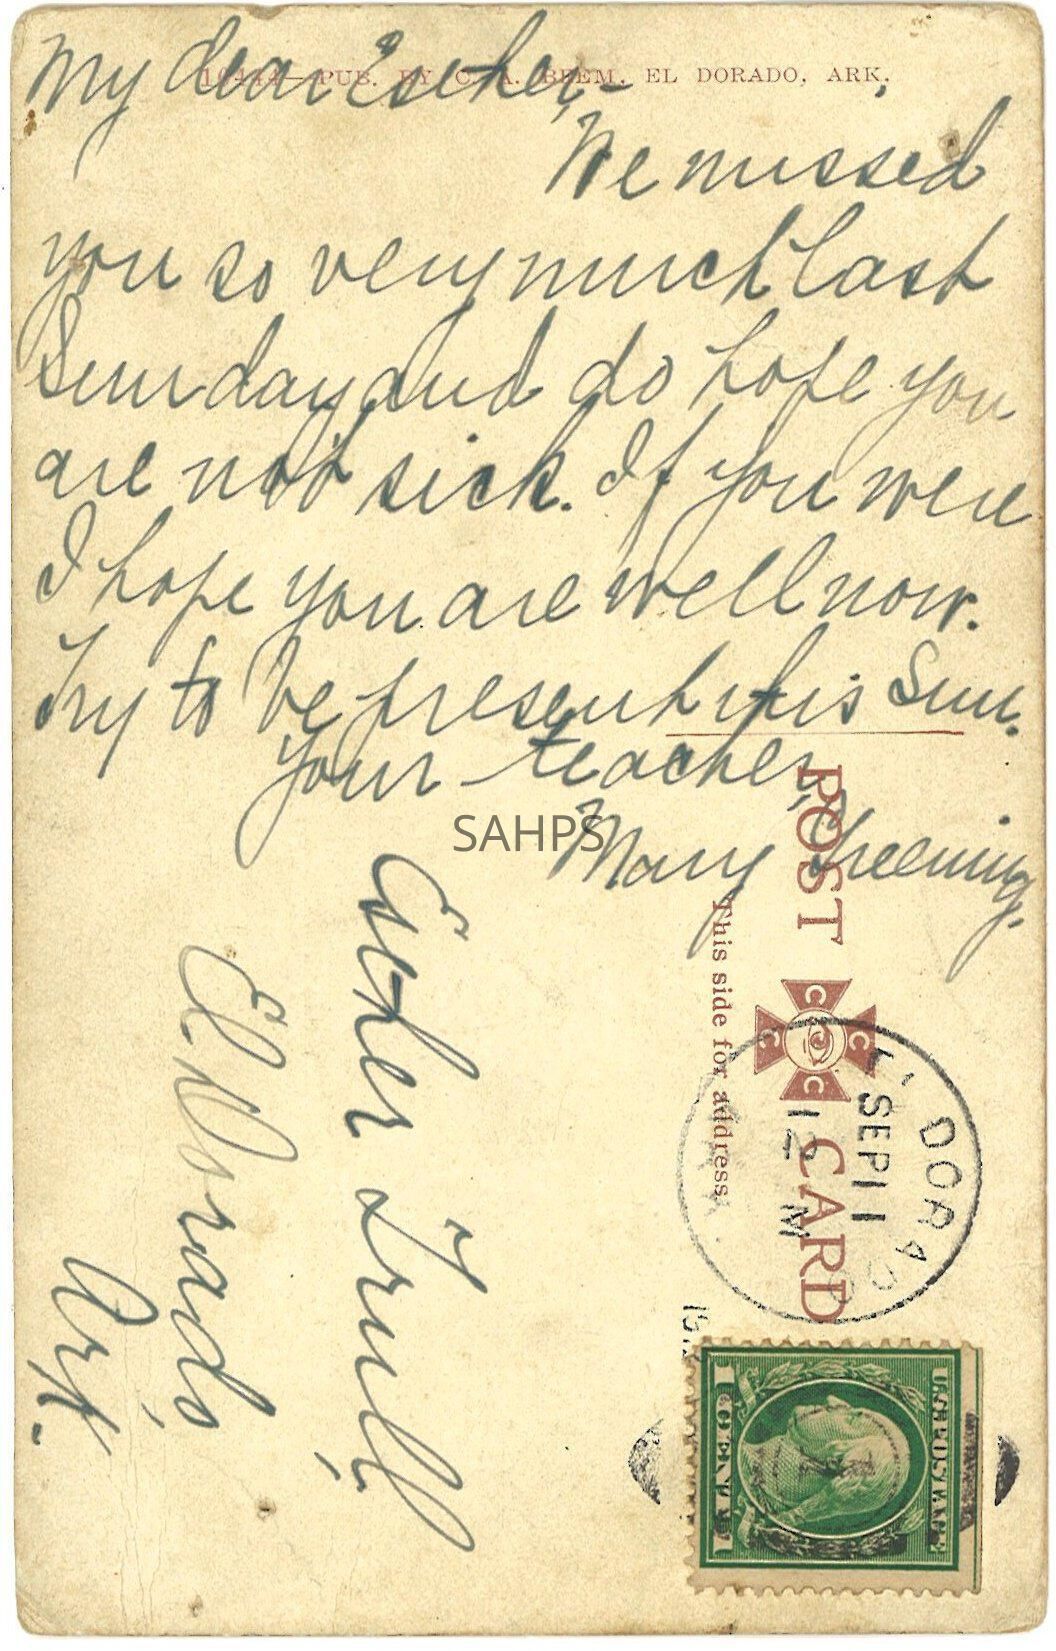 10444—PUB. BY C. A. BEEM, EL DORADO, ARK.
My dear Esther,—
We missed
you so very much last
Sunday and do hope you
are not sick. If you were
I hope you are well now.
Try to be present this Sun.
Your teacher,
Mary Greening.
SAHPS
Esther Trull,
El Dorado,
Ark.
POST CARD
This side for address.
C C C C
DORADO
SEP 11
12 M
191
U.S. POSTAGE
1 CENT 1